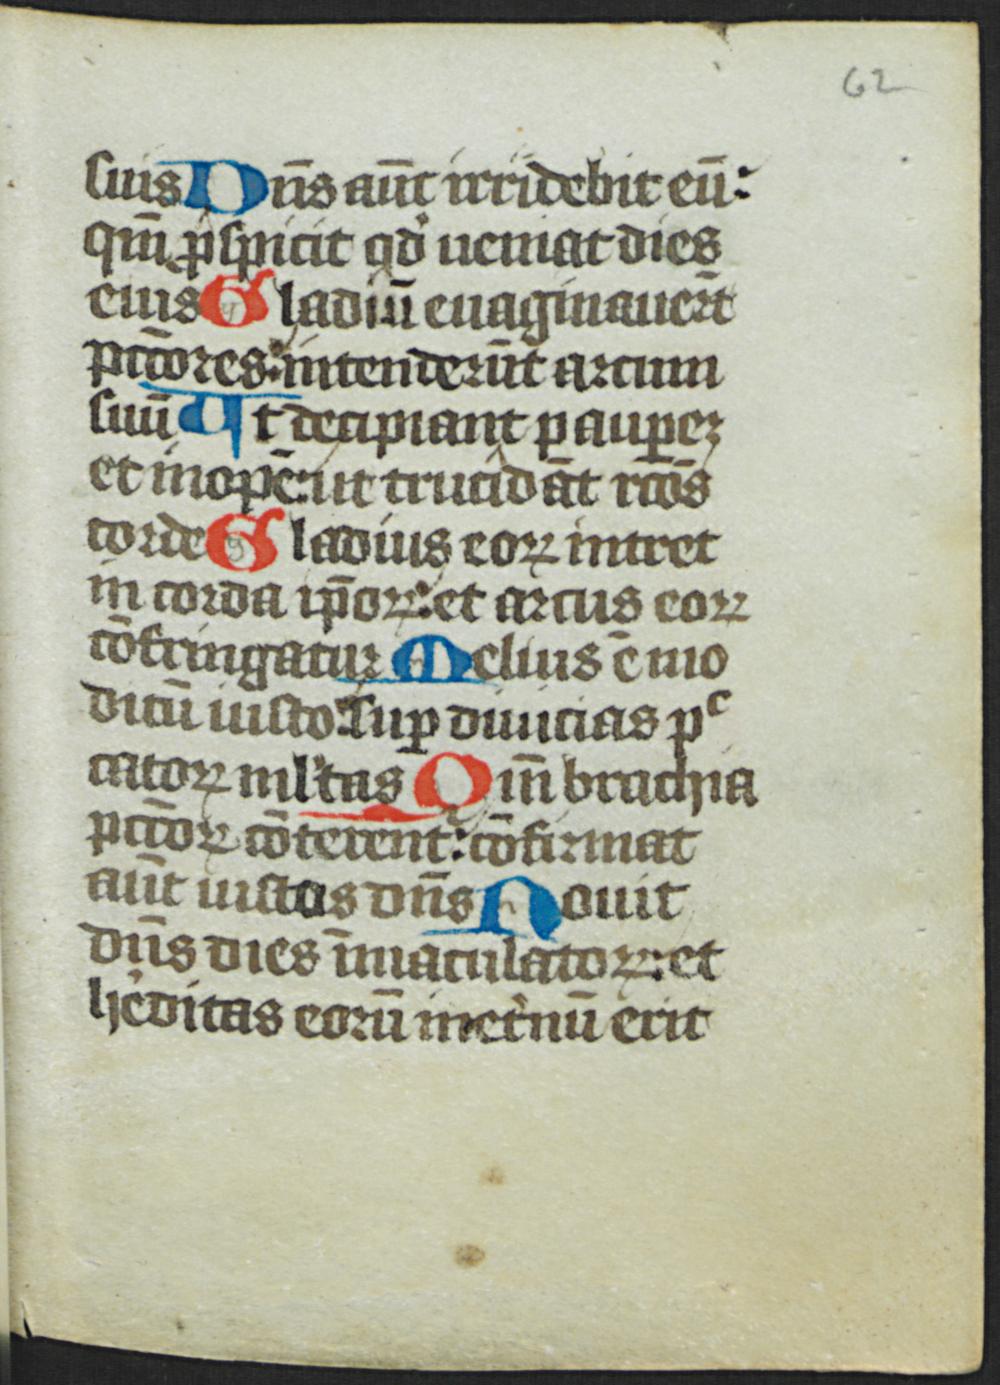 62
suis Dn̄s aūt irridebit eū:
qm̄ p̄spicit qd̓ ueniat dies
eius Gladiū euaginauer̄t
pctōres: intenderūt arcum
suū Ut decipiant pauperꝫ
et inopē: ut trucidāt rc̄os
corde Gladius eoꝝ intret
in corda ip̄oꝝ: et arcus eoꝝ
cōfringatur Melius ē mo
dicū iusto: sup̱ diuicias pᶜ
catoꝝ ml̓tas Qm̄ brachia
pctōꝝ cōterent᷑: cōfirmat
aūt iustos dn̄s Nouit
dn̄s dies īmaculatoꝝ: et
he̓ditas eorū inet̓nū erit